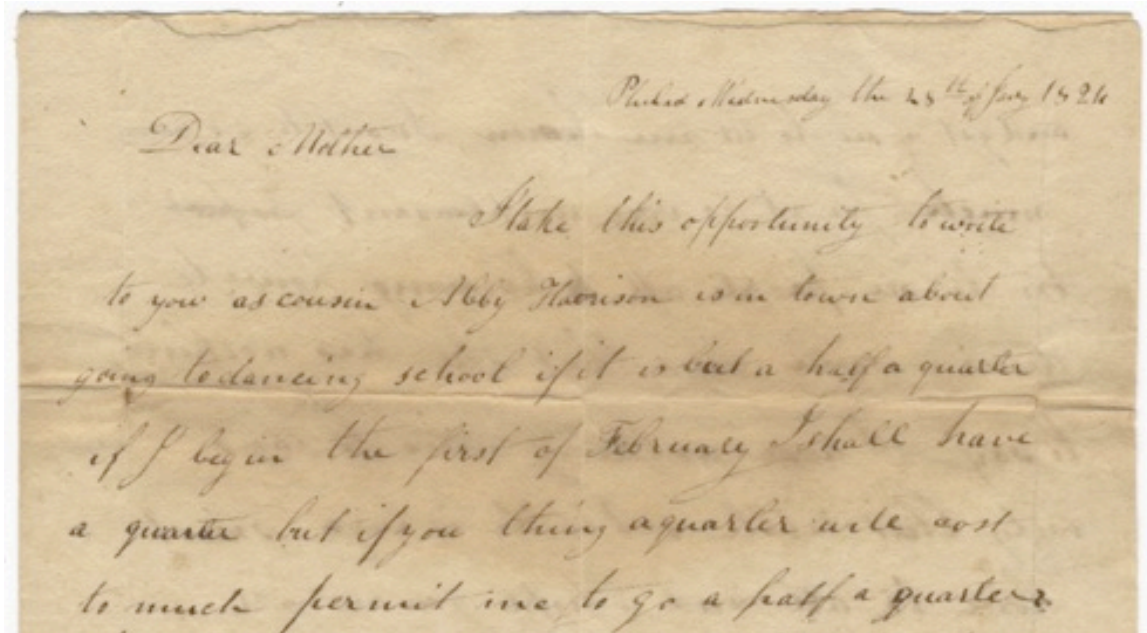 Philad Wednesday the 28th of Jany 1824
Dear Mother
I take this opportunity to write
to you as cousin Abby Harrison is in town about
going to dancing school if it is but a half a quarter
if I begin the first of February I shall have
a quarter but if you thing a quarter will cost
to much permit me to go a half a quarter